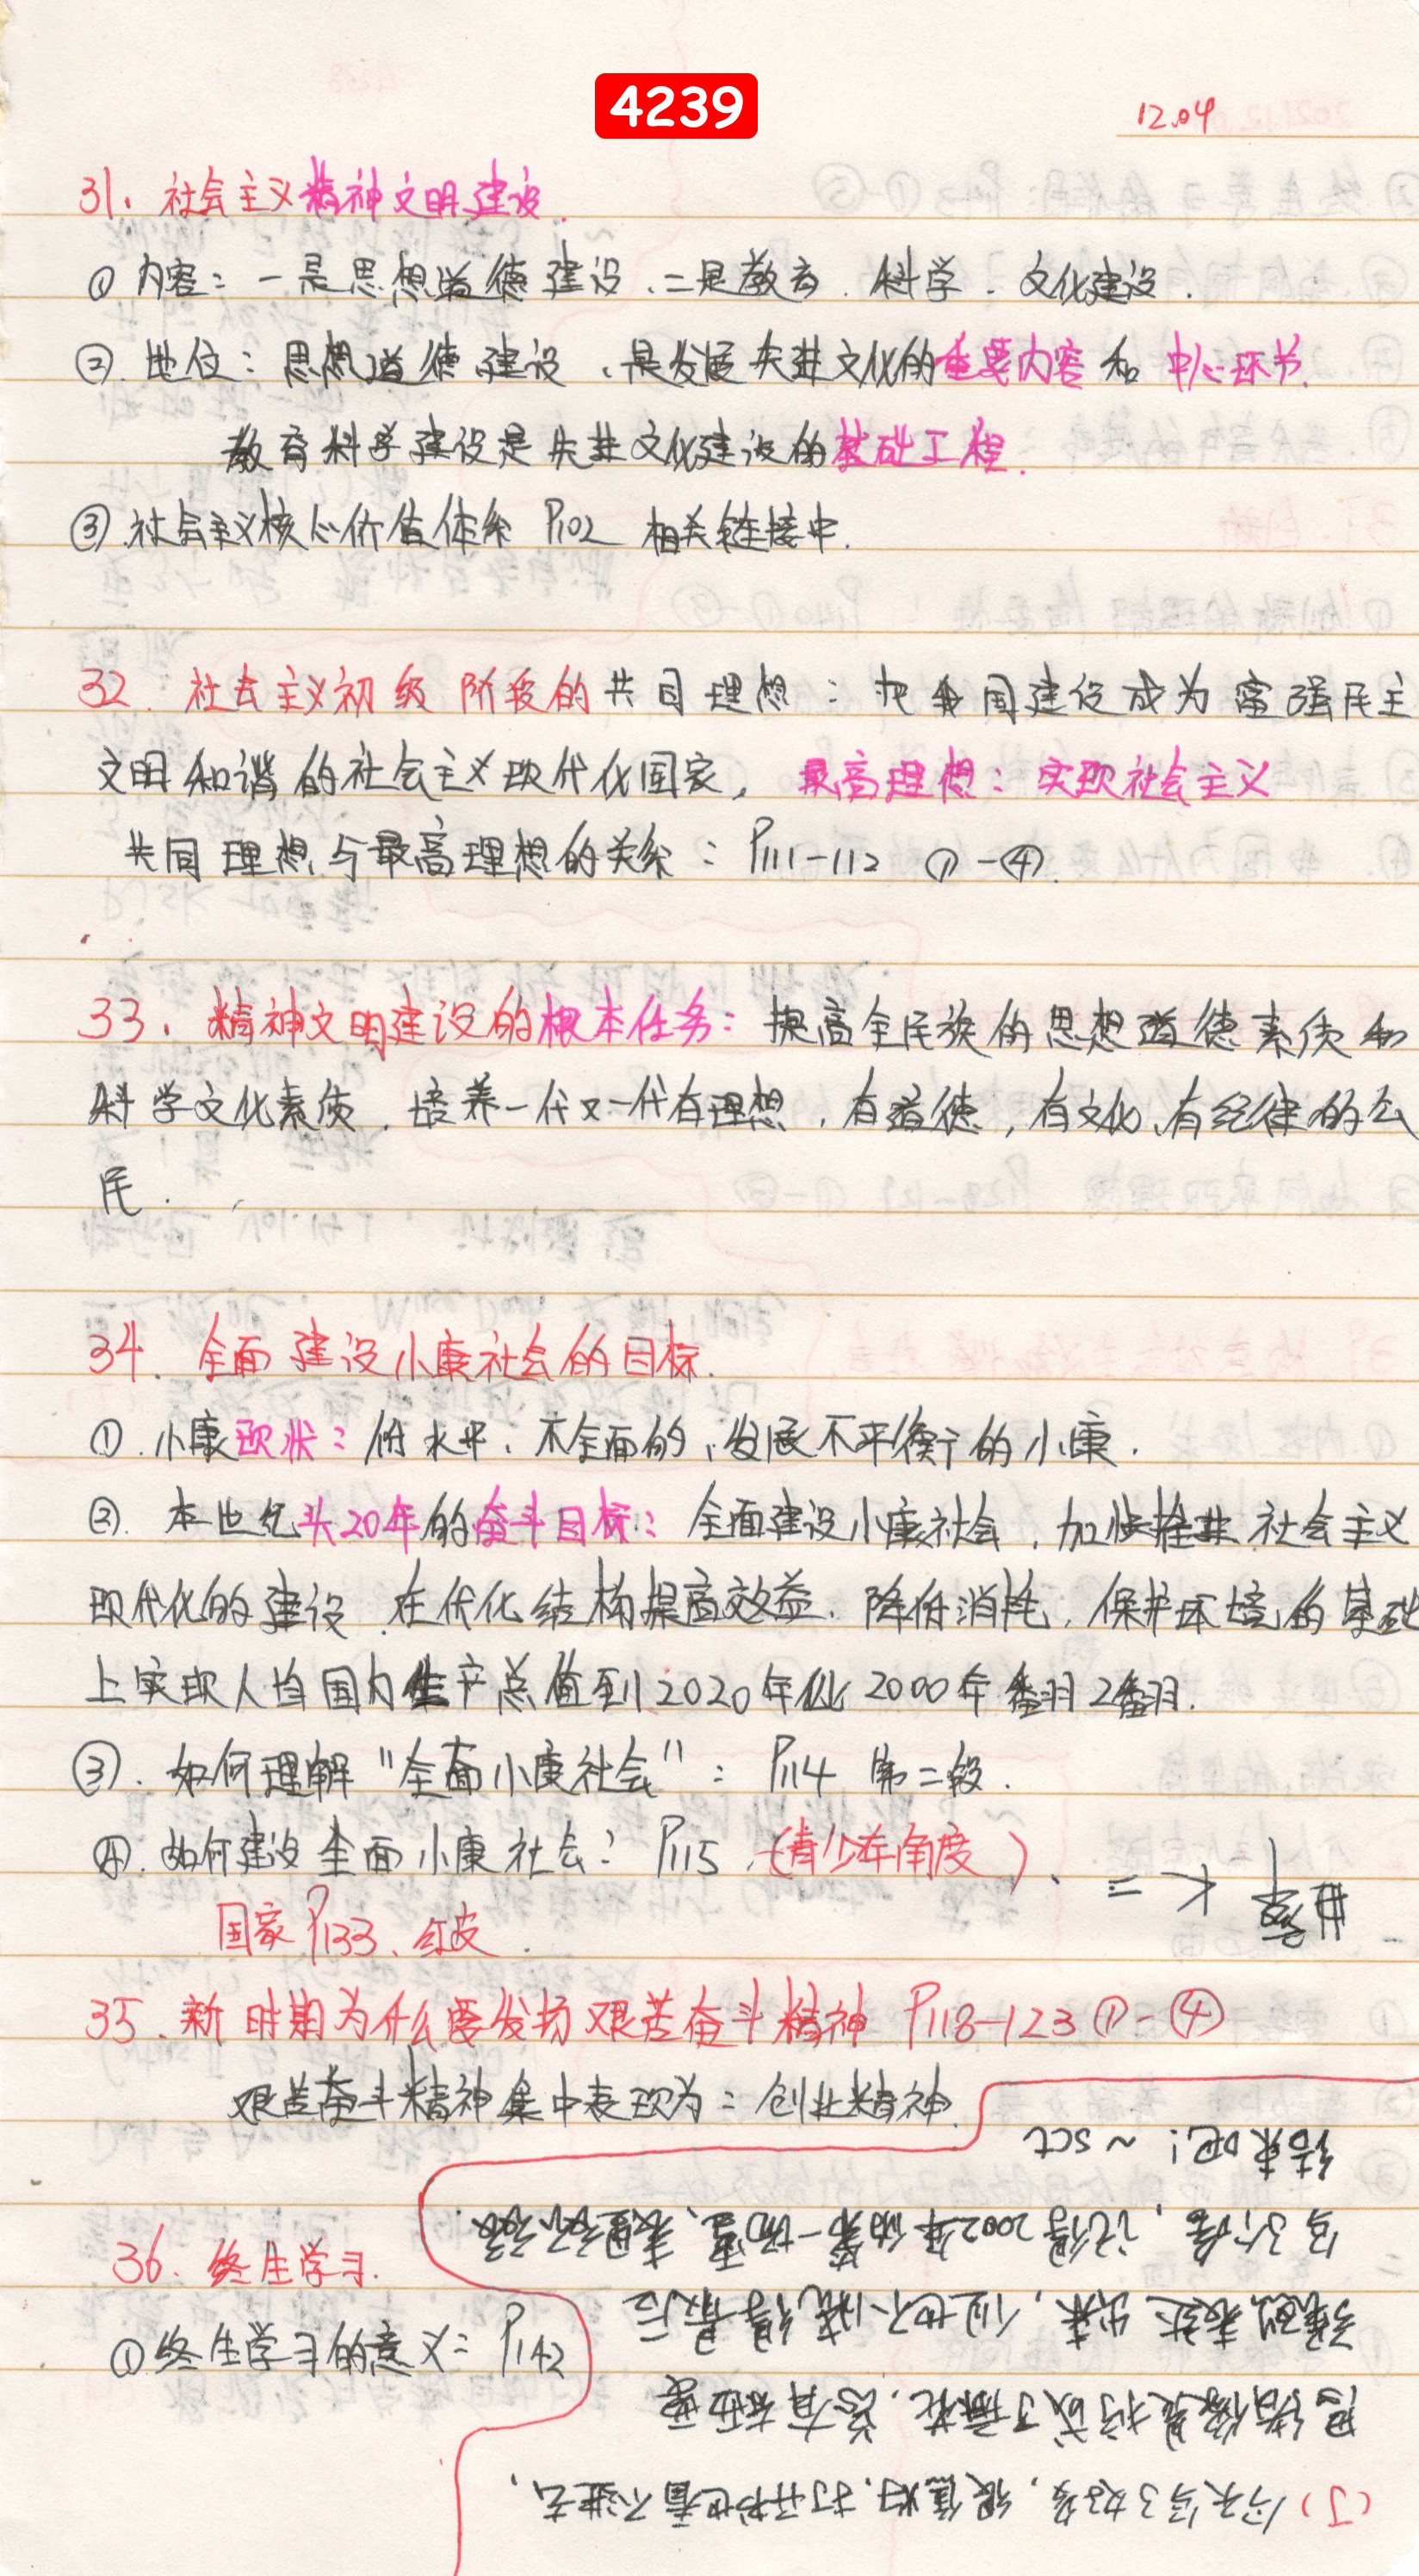 4239
12.04
31. 社会主义精神文明建设.
① 内容：一是思想道德建设、二是教育、科学、文化建设.
②. 地位：思想道德建设、是发展先进文化的重要内容和中心环节.
教育科学建设是先进文化建设的基础工程.
③.社会主义核心价值体系 P102 相关链接中.
32. 社会主义初级阶段的共同理想：把我国建设成为富强民主
文明和谐的社会主义现代化国家, 最高理想：实现社会主义
共同理想与最高理想的关系：P111-112 ①-④.
33. 精神文明建设的根本任务：提高全民族的思想道德素质和
科学文化素质, 培养一代又一代有理想, 有道德, 有文化、有纪律的公
民.
34. 全面建设小康社会的目标.
①.小康现状：低水平、不全面的、发展不平衡的小康.
②. 本世纪头20年的奋斗目标：全面建设小康社会, 加快推进社会主义
现代化的建设 在优化结构提高效益. 降低消耗, 保护环境的基础
上实现人均国内生产总值到2020年比2000年翻2翻.
③. 如何理解"全面小康社会"：P114 第二段.
④. 如何建设全面小康社会：P115 (青少年角度).
国家P133、红皮.
35. 新时期为什么要发扬艰苦奋斗精神 P118-123 ①-④
艰苦奋斗精神集中表现为：创业精神.
36. 终生学习.
①终生学习的意义：P142
(J) 今天写了好多, 很值好, 打开书也看不进去,
思绪像是打成了麻花, 总有些
表达出来, 但也不顾得最后
写3个嗦, 记得2002年的第一场雪,
结束吧! ~ sct